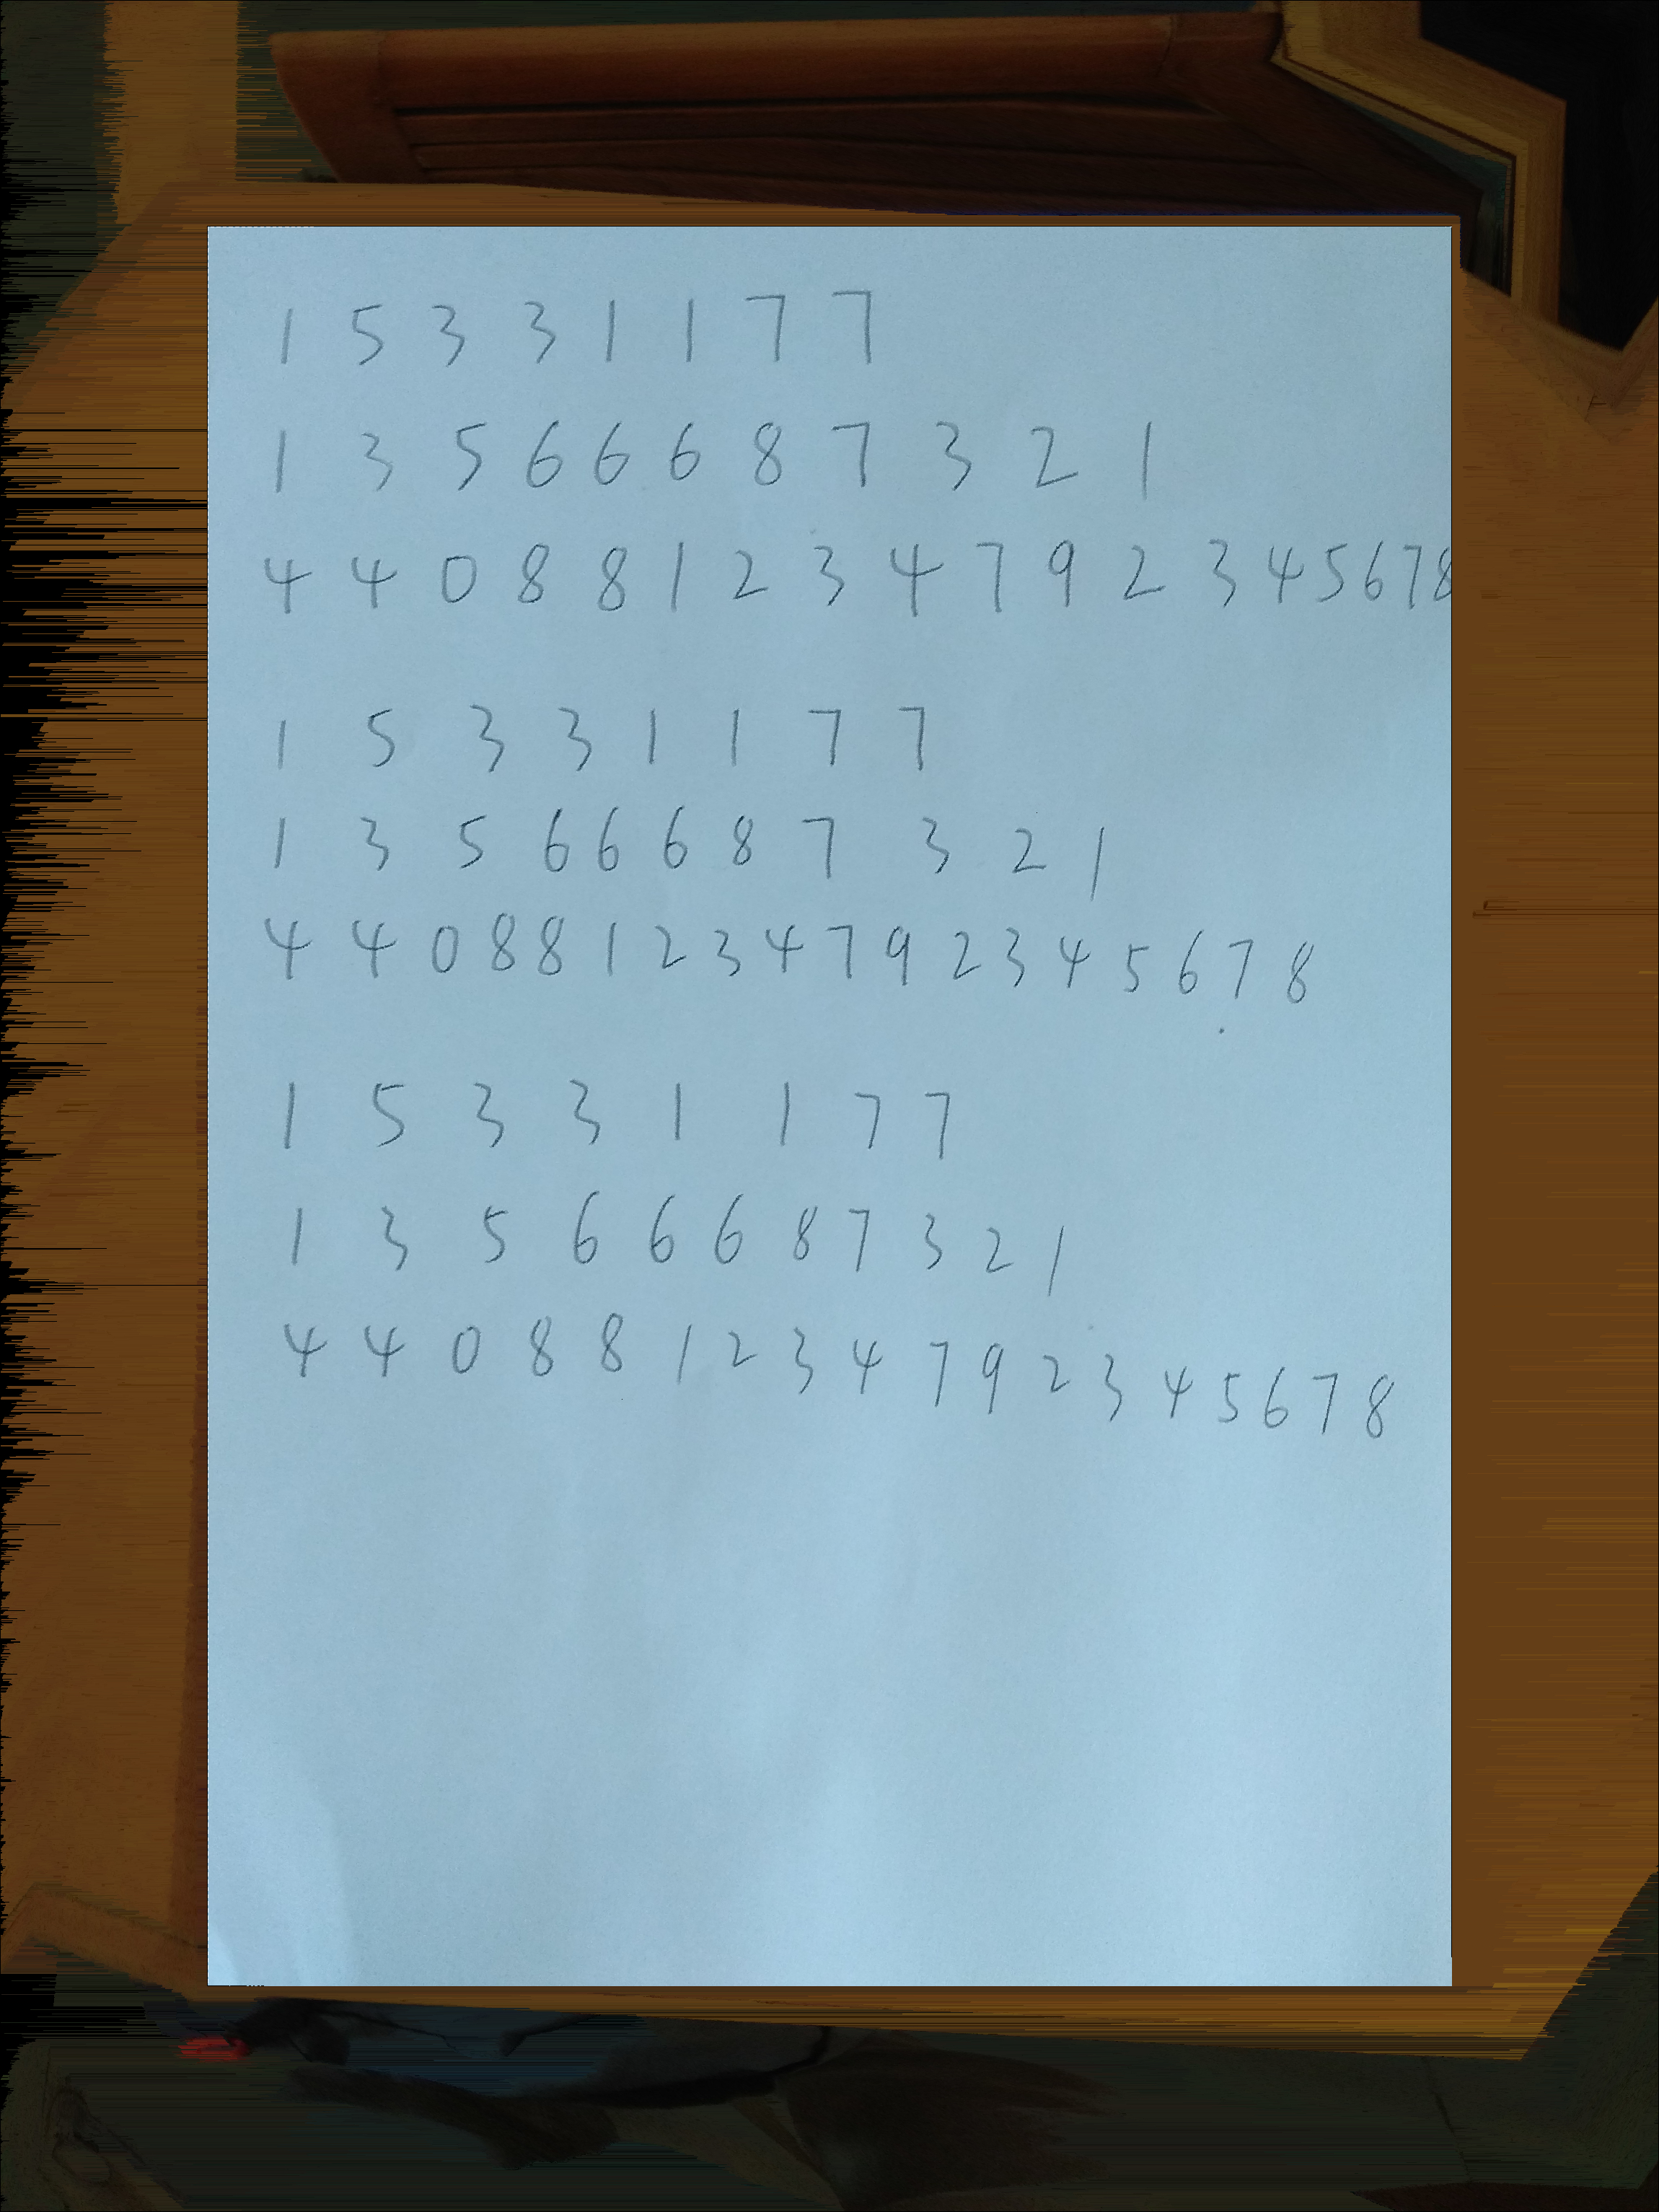 1 5 3 3 1 1 7 7
1 3 5 6 6 6 8 7 3 2 1
4 4 0 8 8 1 2 3 4 7 9 2 3 4 5 6 7 8
1 5 3 3 1 1 7 7
1 3 5 6 6 6 8 7 3 2 1
4 4 0 8 8 1 2 3 4 7 9 2 3 4 5 6 7 8
1 5 3 3 1 1 7 7
1 3 5 6 6 6 8 7 3 2 1
4 4 0 8 8 1 2 3 4 7 9 2 3 4 5 6 7 8